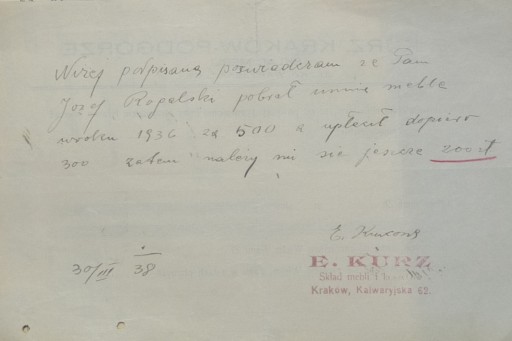 Niżej podpisana poświadczam że Pan
Józef Rogalski pobrał umnie meble
wroku 1936 za 500 z upłacił dopiero
300 zatem należy mi się jeszcze 200 zł
E. Kurcowa
30/III 38
E. KURZ
Skład mebli i
Kraków, Kalwaryjska 62.